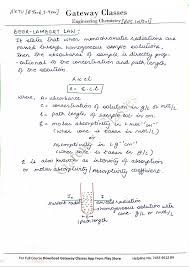 AKTU (B.Tech I-Year)
Gateway Classes
Engineering Chemistry
BEER-LAMBERT LAW :
It states that when monochromatic radiations are
passed through homogeneous sample solutions,
then the absorbance of sample is directly propo
-rtional to the concentration and path length
of the solution.
A ∝ c.l
A = ε.c.l
where, A = absorbance
c = concentration of solution in g/L or mol/L
l = path length of sample cell in cm.
ε = molar absorptivity in L mol⁻¹ cm⁻¹
(when conc is taken in mol/L)
or
= absorptivity in L g⁻¹ cm⁻¹
(when conc is taken in g/L)
ε is also known as intensity of absorption
or molar absorptivity
Incident radiation
radiation
homogeneous solution with
conc. g/L or mol/L
path length
For Full Course Download Gateway Classes App From Play Store
Helpline No. 7455 9612 84